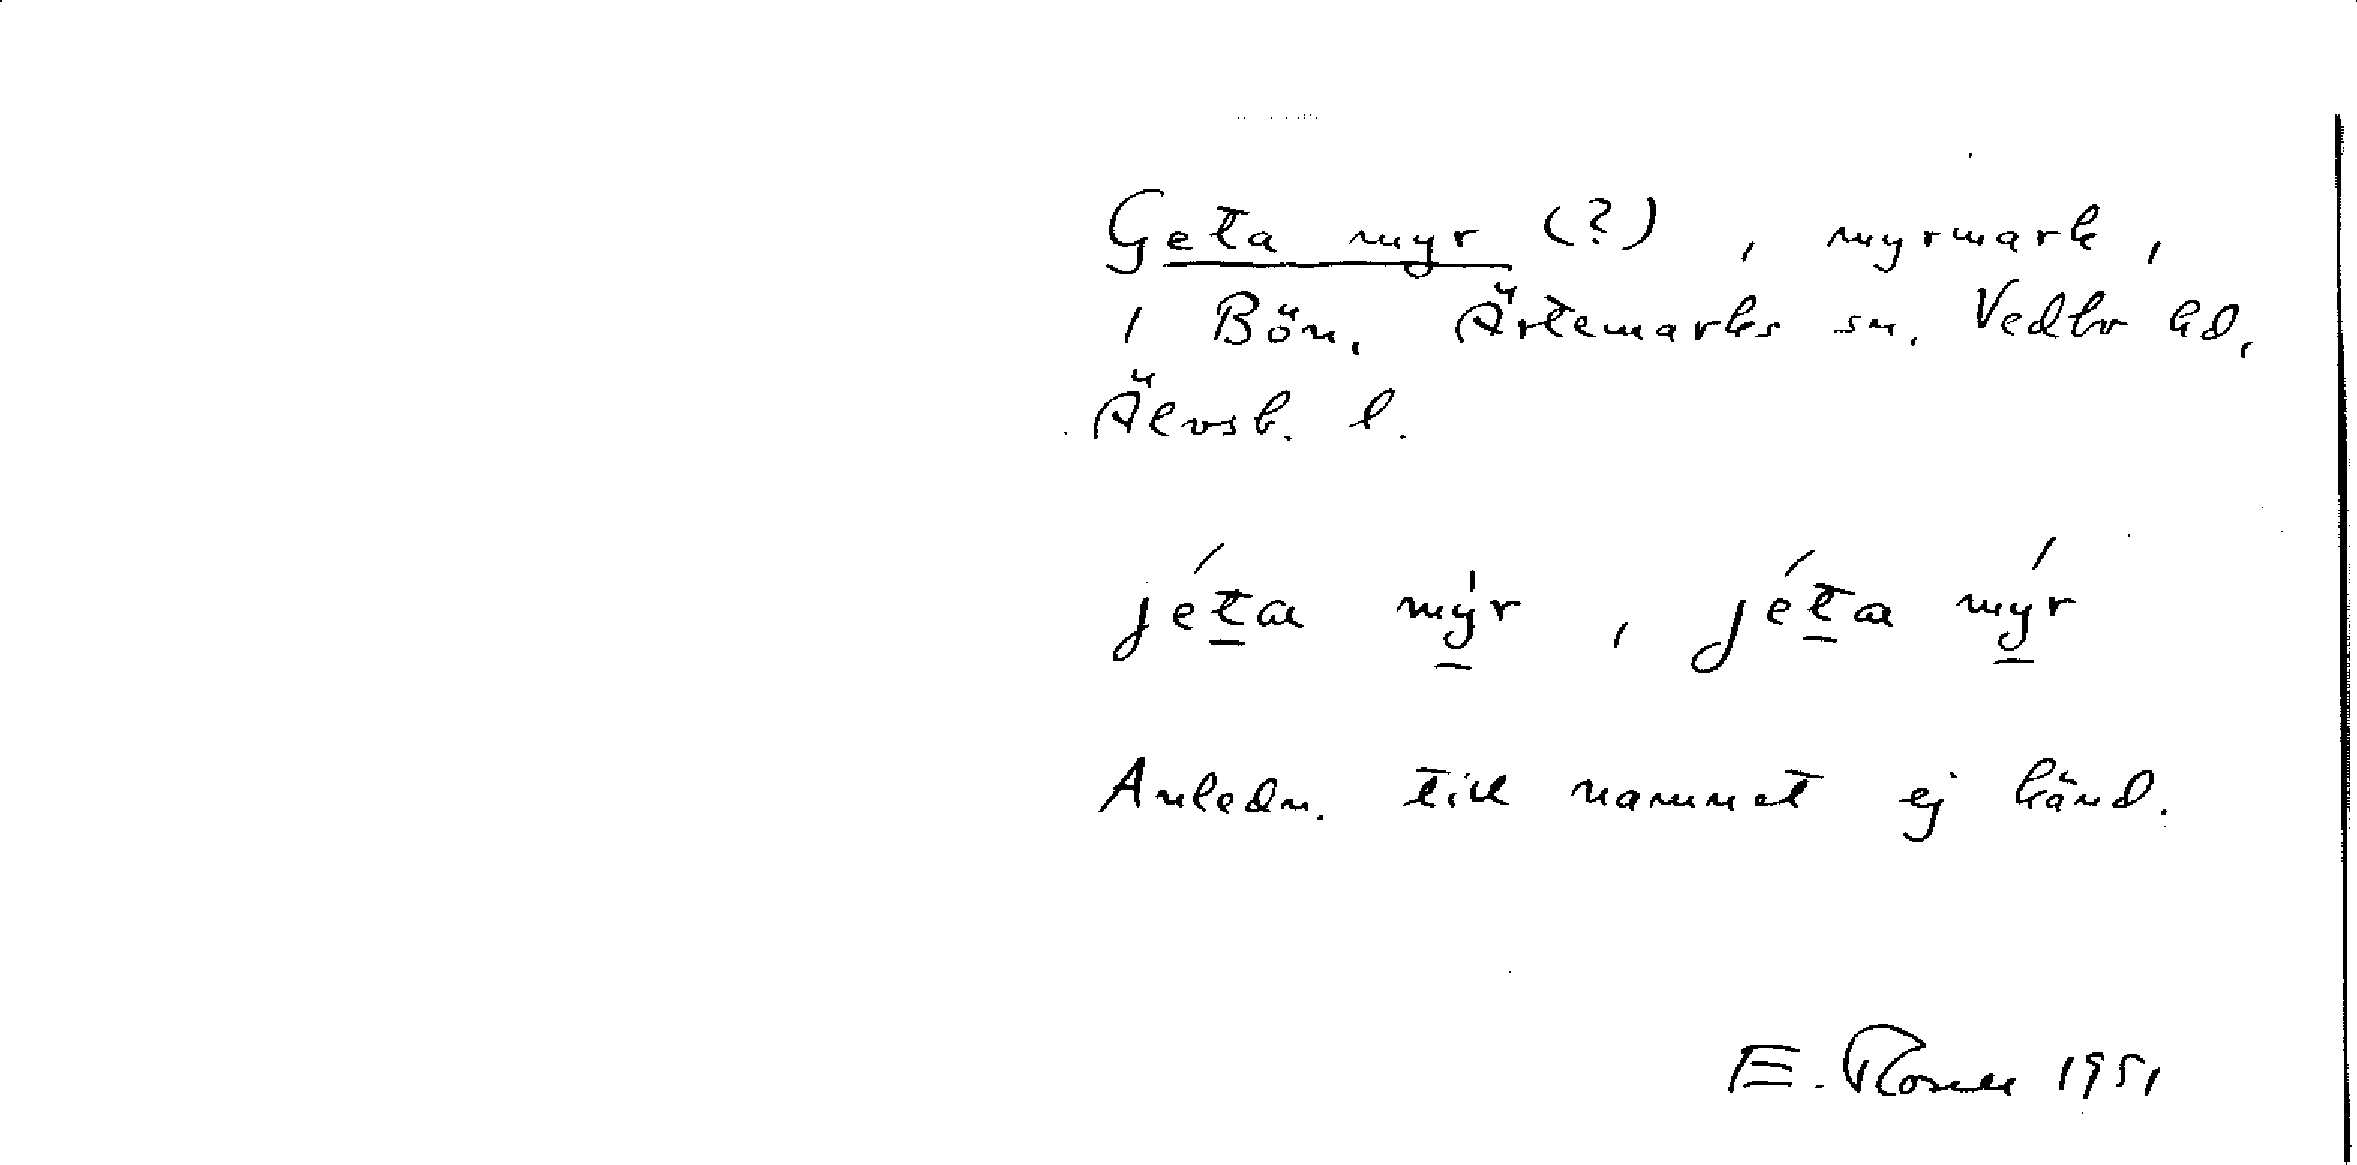 Geta myr (?), myrmark,
i Bön, Ärtemarks sn, Vedbo hd,
Älvsb. l.
jéta mýr, jéta mýr
Anledn. till namnet ej känd.
E. 1951